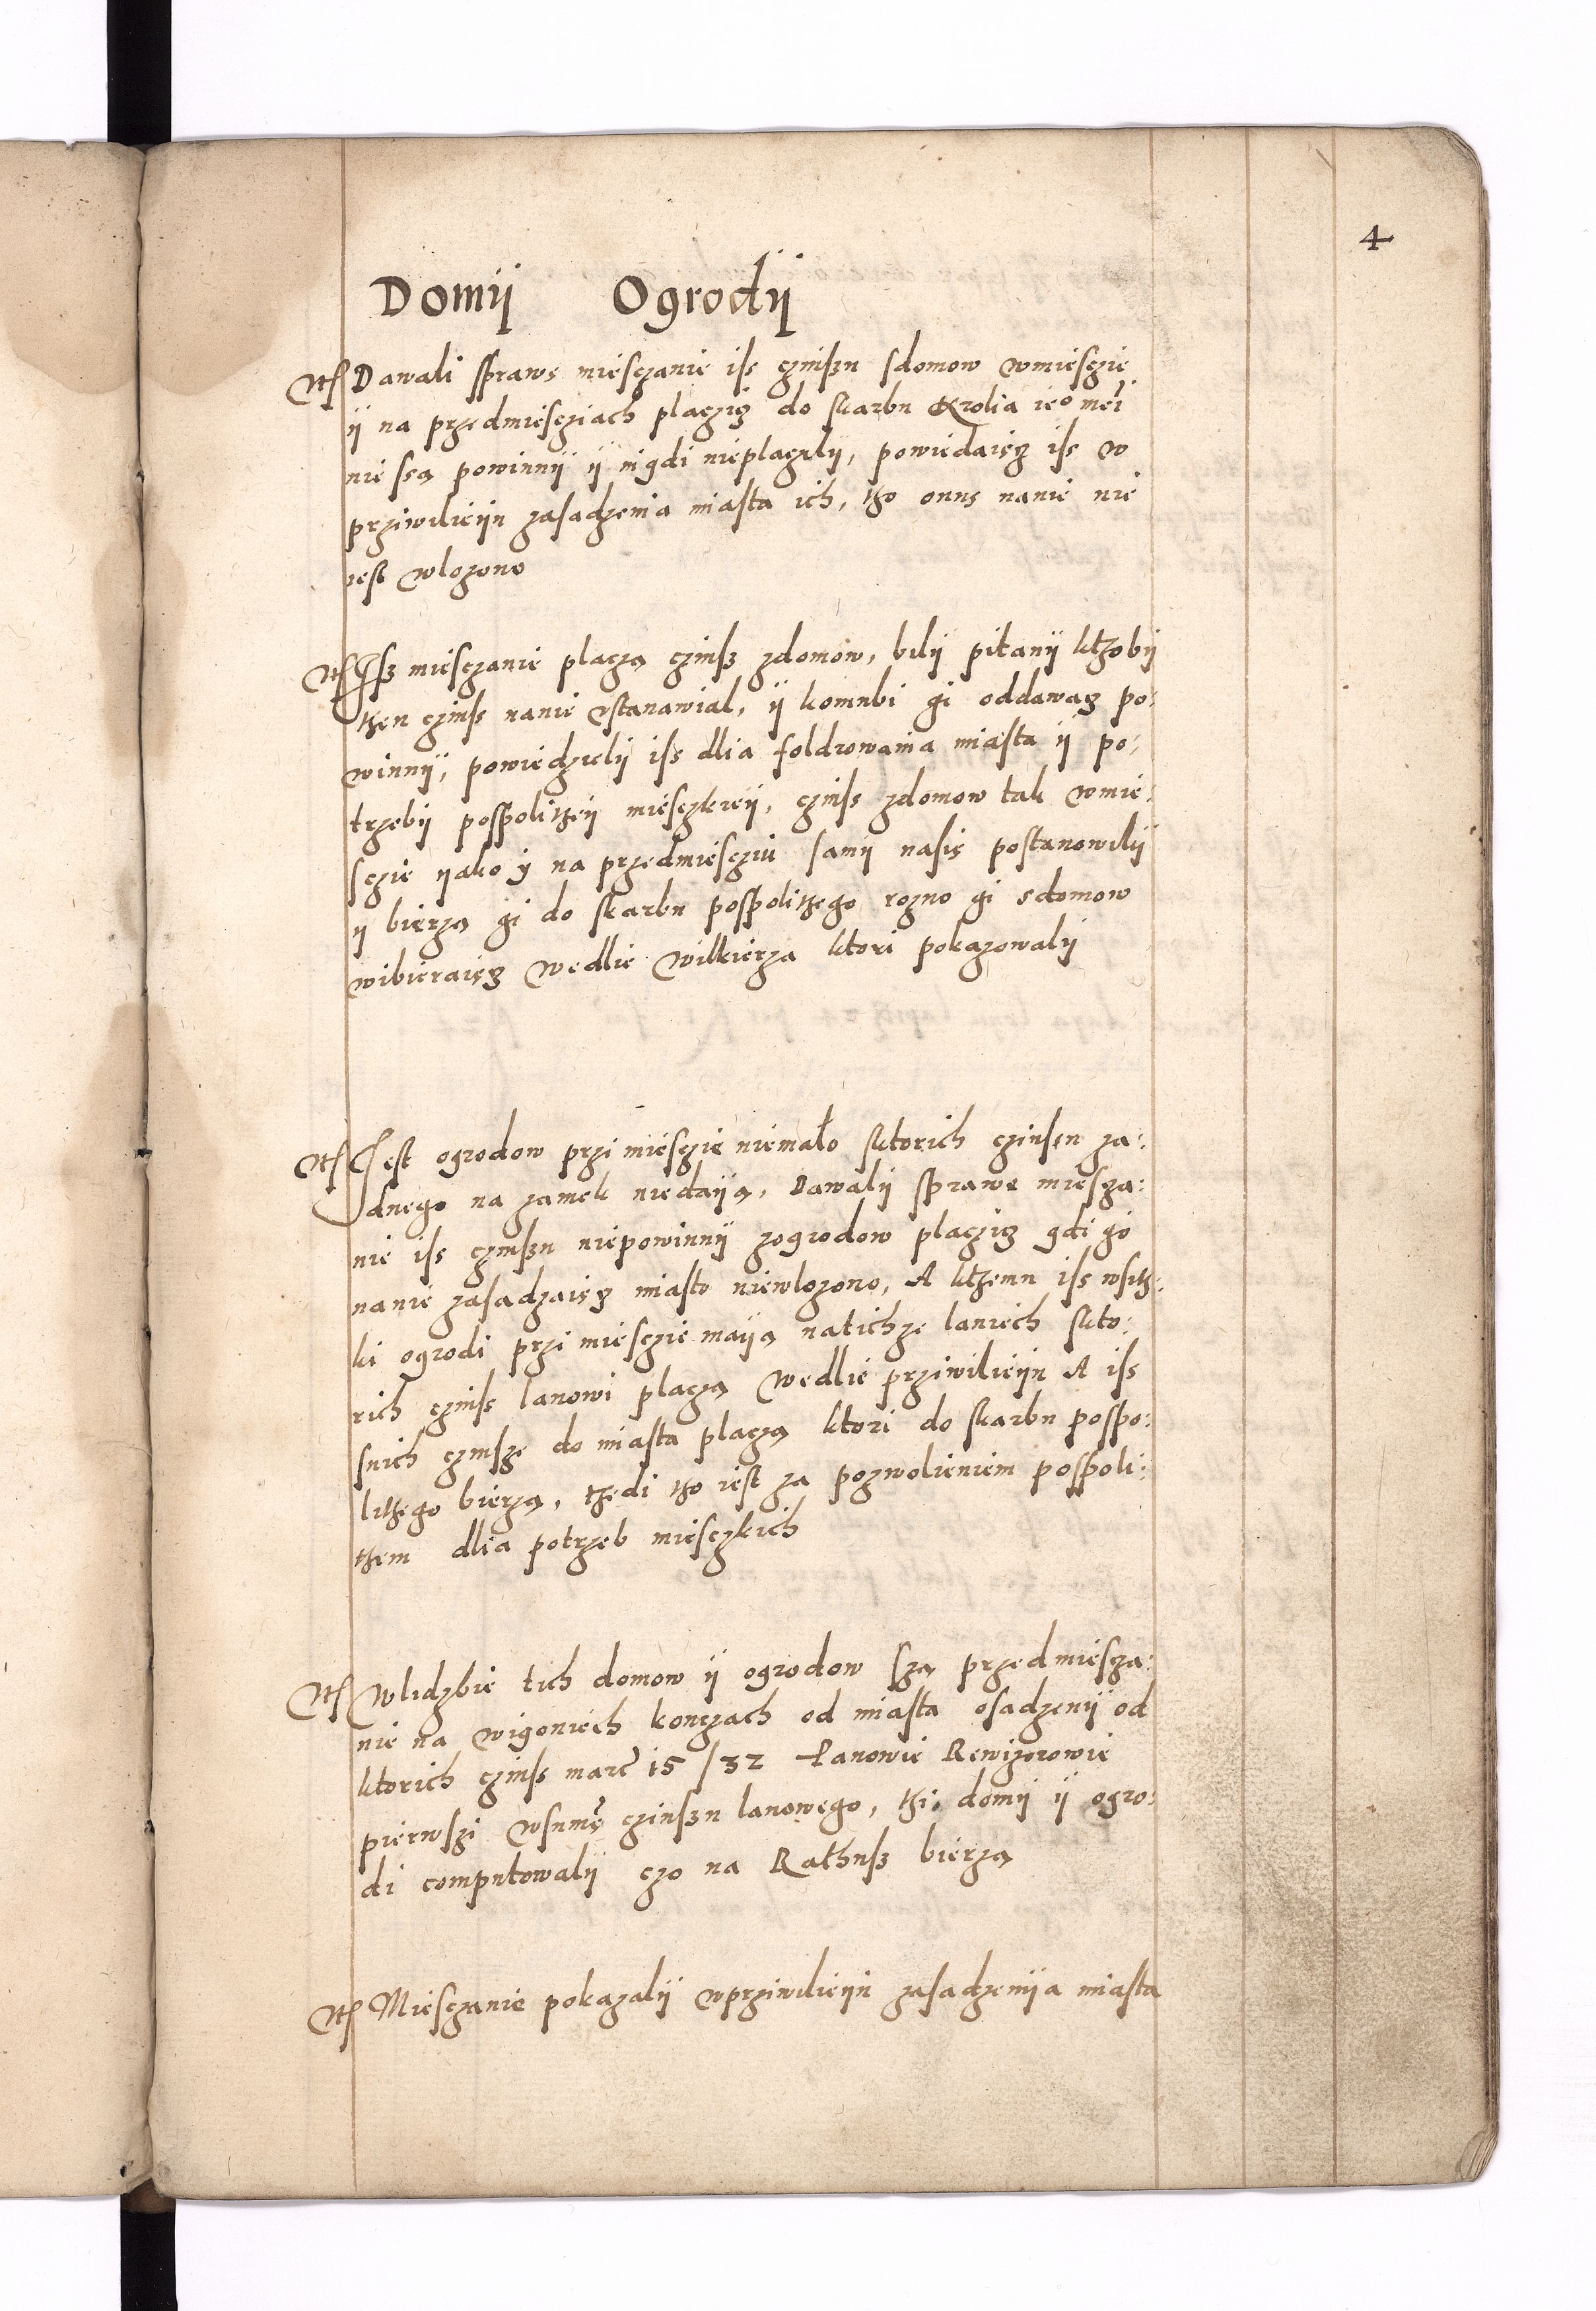 4
Domÿ Ogrodÿ
Itē Dawali sprawę miesczanie iss czinszu sdomow wmiesczie
ÿ na przedmiescziach placzicz do skarbu Krolia ieº mći
nie ssą powinnÿ ÿ nigdi nieplaczelÿ, powiedaiącz iss w
prziwilieiju zasadzenia miasta ich, tho onus nanie nie
iest wlozono
Itē Isz miesczanie placzą czinsz zdomow, bilÿ pitanÿ kthobÿ
then czinss nanie ustanawial, ÿ komubi gi oddawacz po:
winnÿ, powiedzielÿ iss dlia foldrowania miasta ÿ po:
trzebÿ pospolitheÿ miesczkieÿ, czinss zdomow tak wmie:
sczie ÿako ÿ na przedmiescziu samÿ nasię postanowilÿ
ÿ bierzą gi do skarbu pospolithego rozno gi sdomow
wibieraiącz wedlie wilkierza ktori pokazowalÿ
Itē Jest ogrodow przi miesczie niemało sktorich czinssu za:
dnego na zamek niedaiją, Dawalÿ sprawę miescza:
nie iss czinszu niepowinnÿ zogrodow placzicz gdi go
nanie zasadzaiącz miasto niewlozono, A kthemu iss wsith:
ki ogrodi przi miesczie maiją natichze laniech skto:
rich czinss lanowi placzą wedlie prziwilieiju A iss
snich czinsze do miasta placzą ktori do skarbu pospo:
lithego bierzą, thedi tho iest za pozwolieniem pospoli:
them dlia potrzeb miesczkich
Itē Wlidzbie tich domow ÿ ogrodow szą przedmiescza:
nie na wigoniech konczach od miasta osadzenÿ od
ktorich czinss marc 15 /32 Łanowie Rewizorowie
pierwszi wsumę czinszu lanowego, thi domÿ ÿ ogro:
di computowalÿ czo na Rathusz bierzą
Itē Miesczanie pokazalÿ wprziwilieiju zasadzenija miasta